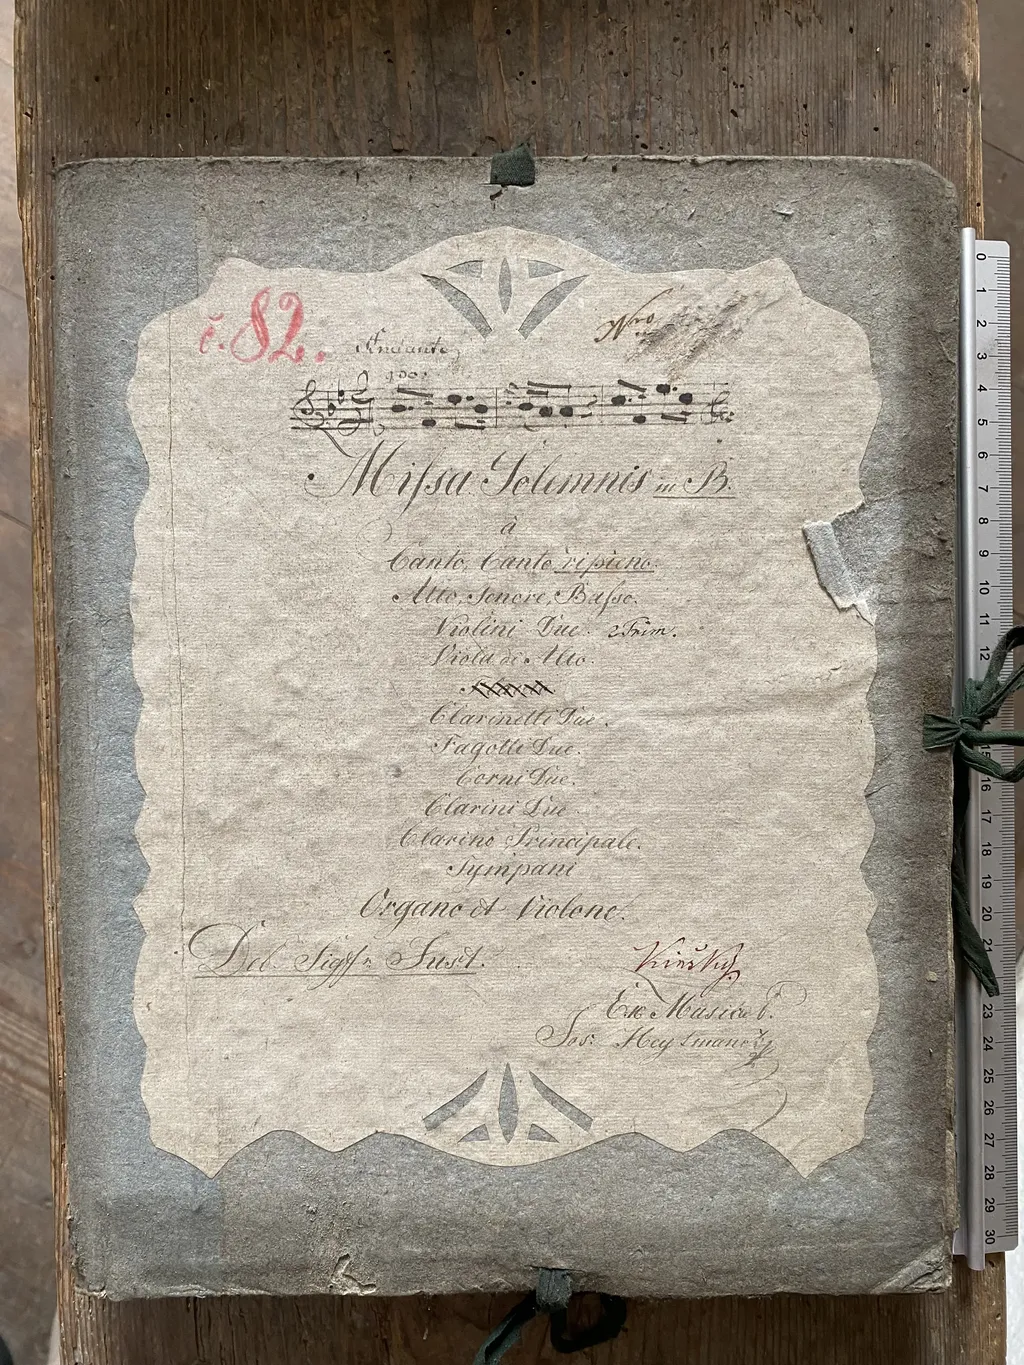 č. 82.
Nro
Andante
Missa Solemnis in B.
à
Canto, Canto ripieno.
Alto, Tenore, Basso.
Violini Due. 2 Prim.
Viola di Alto.
Clarinetti Due.
Fagotti Due.
Corni Due.
Clarini Due
Clarino Principale.
Tympani
Organo et Violone.
Del Sigre
Ex Musica
Jos:
0
1
2
3
4
5
6
7
8
9
10
11
12
15
16
17
18
19
20
21
23
24
25
26
27
28
29
30